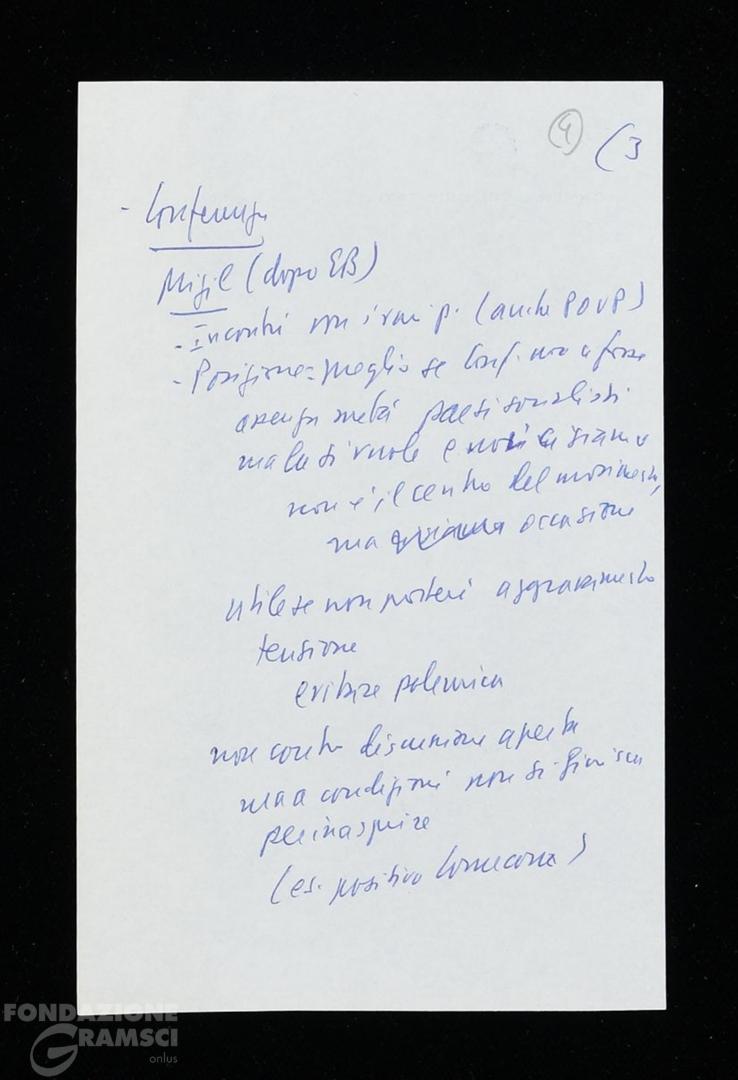 4 (3
- Conferenza
Mijil (dopo EB)
- Incontri non i vari p. (anche POUP)
- Posizione = meglio se Conf. non a forze
assenza metà paesi socialisti
ma la si vuole e noi ci siamo
non è il centro del movimento,
ma occasione
utile se non porterà aggravamento
tensione
evitare polemica
non contro discussione aperta
ma a condizioni non si finisca
per inasprire
(es. positivo Comecon)
FONDAZIONE
GRAMSCI
onlus